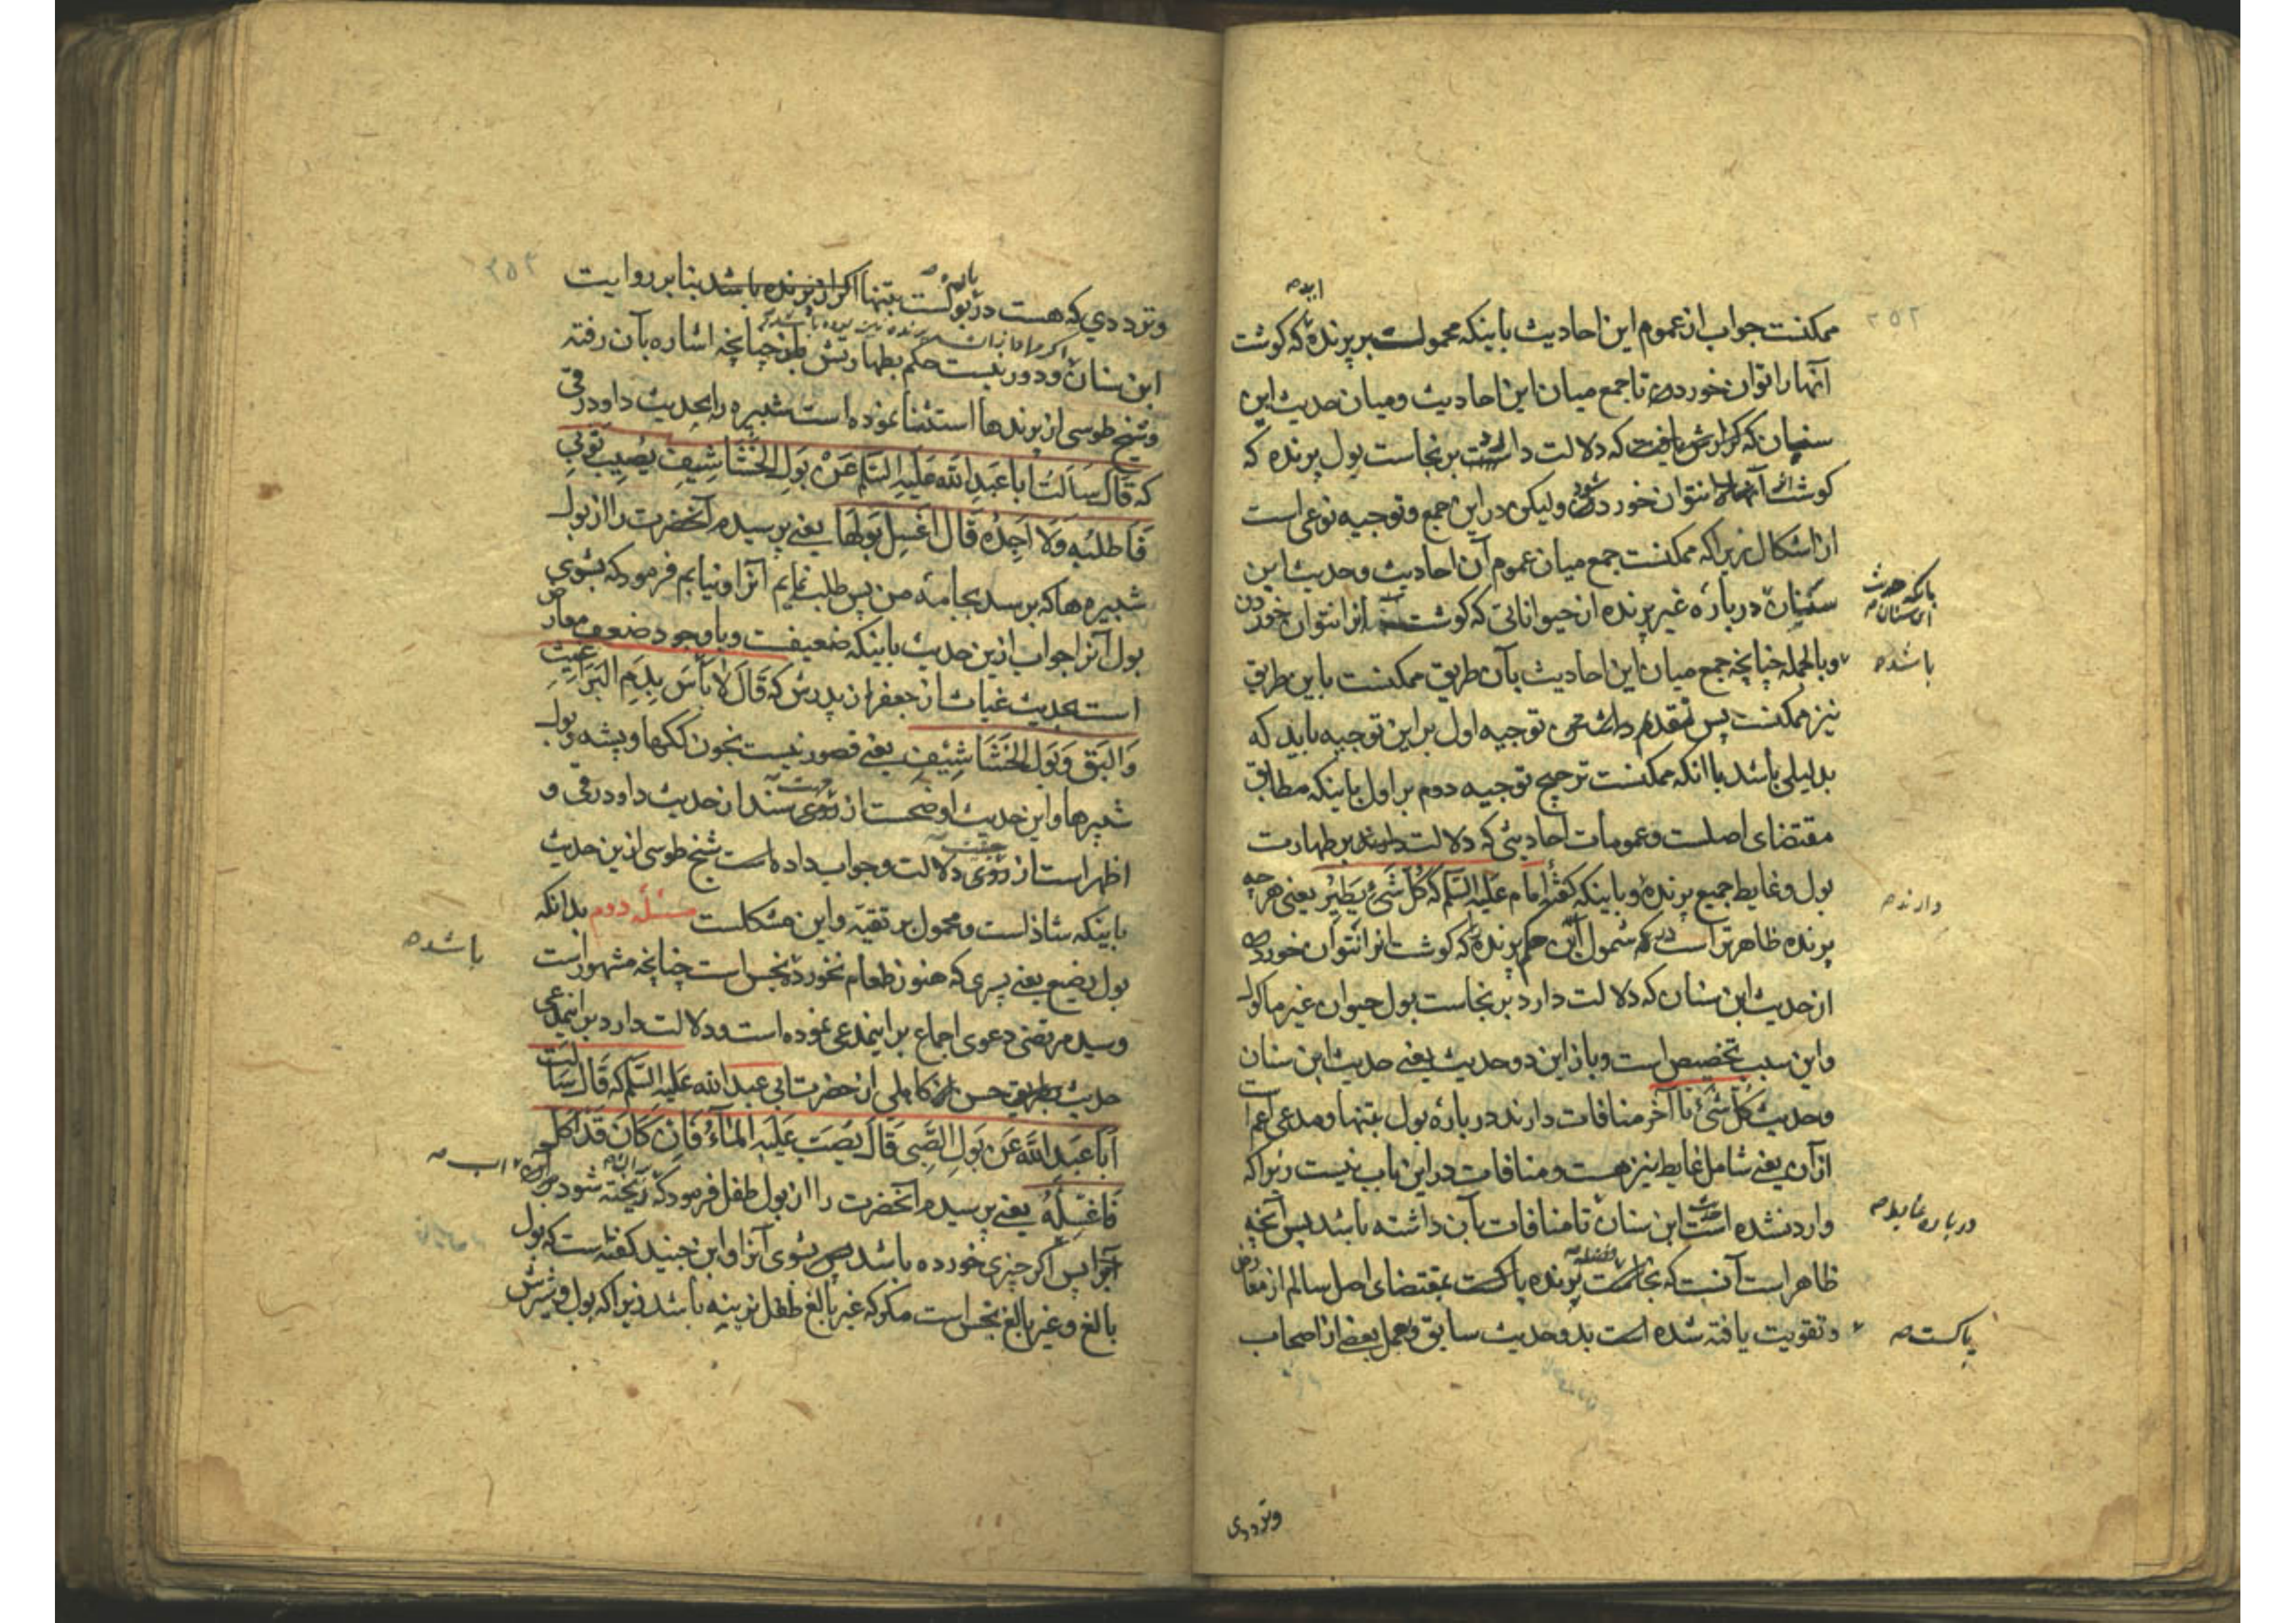 ۲۵۲
ممکنست جواب از عموم این احادیث باینکه محمولست بر پرنده که کوشت
آنها را توان خوردن تا جمع میان این احادیث و میان حدیث ابن
سنان که گزارش یافت که دلالت داشت بر نجاست بول پرنده که
کوشت آنها را نتوان خورد ولیکن در این جمع و توجیه نوعی است
از اشکال زیرا که ممکنست جمع میان عموم آن احادیث و حدیث ابن
سنان درباره غیر پرنده از حیواناتی که کوشت آنرا نتوان خوردن
باشد
وبالجمله چنانچه جمع میان این احادیث بآن طریق ممکنست باین طریق
نیز ممکنست پس مقدم داشتن توجیه اول بر این توجیه باید که
بدلیلی باشد باآنکه ممکنست ترجیح توجیه دوم بر اول باینکه مطابق
مقتضای اصلست و عمومات احادیثی که دلالت دارند بر طهارت
دارند
بول و غایط جمیع پرنده و باینکه کفته امام علیه السلم که کل شئ یطیر یعنی هر چه
پرنده ظاهرتر است در که شمول این حکم پرنده که کوشت آنرا نتوان خورد
از حدیث ابن سنان که دلالت دارد بر نجاست بول حیوان غیر ماکول
واین سبب تخصیص است و باز این دو حدیث یعنی حدیث ابن سنان
وحدیث کل شئ تا آخر منافات دارند درباره بول بتنها و مدعی اعم است
از آن یعنی شامل غایط نیز هست و منافات در این باب نیست زیرا که
وارد نشده است حدیث ابن سنان تا منافات بآن داشته باشد پس آنچه
درباره غایط
ظاهر است آنست که فضله پرنده پاکست بمقتضای اصل سالم از معارض
وتقویت یافته شده است بدو حدیث سابق و بعمل بعضی از اصحاب
پاکست
وترددی
۲۵۳
وترددی که هست در بولست بتنها اکر از پرنده باشد بنابر روایت
ابن سنان و دور نیست حکم بطهارتش چنانچه اشاره بآن رفته
وشیخ طوسی از پرندها استثنا نموده است شبپره را بحدیث داود رقی
که قال سالت ابا عبد الله علیه السلم عن بول الخشاشیف یصیب ثوبی
فاطلبه ولا اجده قال اغسل بولها یعنی پرسیدم آنحضرت را از بول
شبپره ها که برسد بجامه من پس طلب نمایم آنرا و نیابم فرمود که بشوی
بول آنرا جواب ازین حدیث باینکه ضعیفست و باوجود ضعف معارض
است بحدیث غیاث از جعفر از پدرش که قال لا باس بدم البراغیث
والبق وبول الخشاشیف یعنی قصور نیست بخون ککها و پشه و بول
شبپرها و این حدیث اوضحست از روی سند از حدیث داود رقی و
اظهر است از روی دلالت و جواب داده است شیخ طوسی ازین حدیث
باینکه شاذ است و محمول بر تقیه و این مشکلست مسئله دوم بدانکه
باشد
بول رضیع یعنی پسری که هنوز طعام نخورده نجس است چنانچه مشهور است
وسید مرتضی دعوی اجماع بر اینمدعی نموده است و دلالت دارد بر اینمدعی
حدیث حسن از حضرت ابی عبد الله علیه السلم که قال سالت
ابا عبد الله عن بول الصبی قال یصب علیه المآء فان کان قد اکل
فاغسله یعنی پرسیدم آنحضرت را از بول طفل فرمود که ریخته شود
پس اکر چیزی خورده باشد بشوی آنرا و ابن جنید کفته است که بول
بالغ و غیر بالغ نجس است مکر که غیر بالغ طفل نرینه باشد زیرا که بول و شیرش